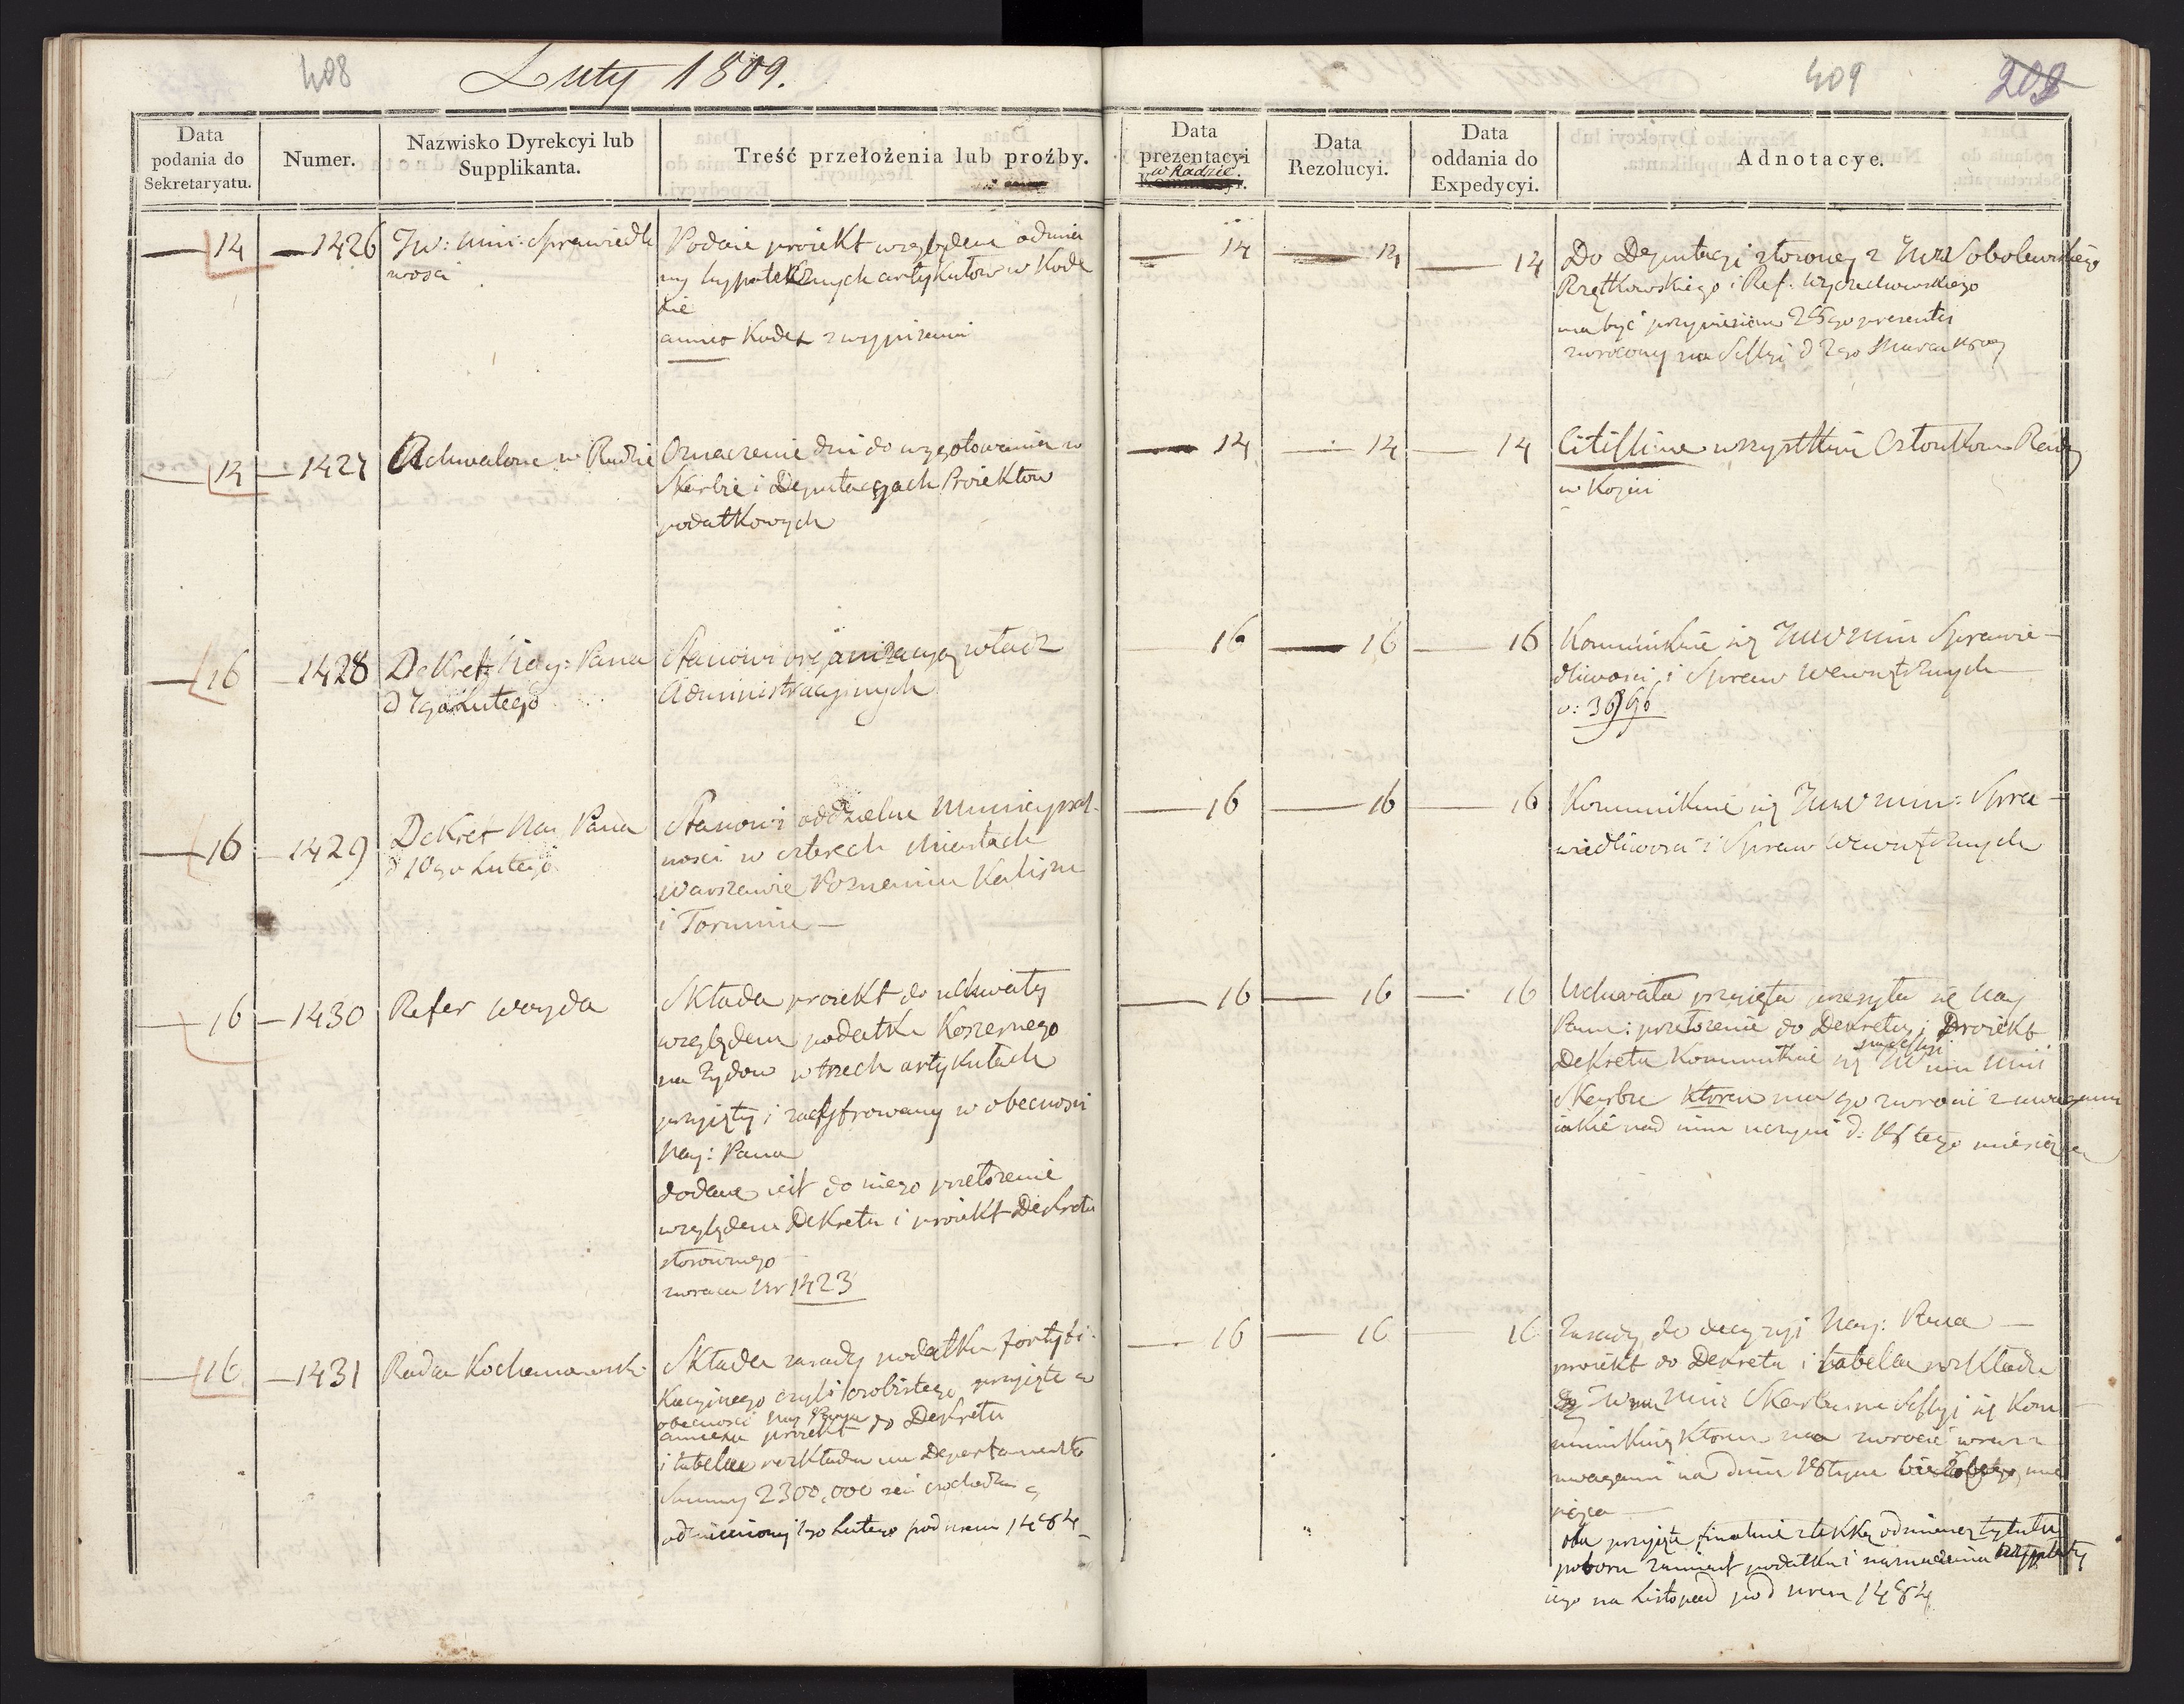 408
Luty 1809.
409
202
Data
podania do
Sekretaryatu.
Numer.
Nazwisko Dyrekcyi lub
Supplikanta.
Treść przełożenia lub proźby.
Data
prezentacyi
w Radzie.
Data
Rezolucyi.
Data
oddania do
Expedycyi.
Adnotacye.
14
1426
Jw: Min: Sprawiedli
wosci
Podaie proiekt względem odmia
ny hypotecznych artykułow w Kode
xie
annex Kodex z wypisami
14
14
14
Do Deputacyi złozoney z JWW Sobolewskiego
Rzętkowskiego i Ref. Wyczechowskiego
ma być przyniesiony 25go
zwrocony na Sessyi d 2go Marca
14
1427
Uchwalone w Radzie
Oznaczenie dni do wygotowania w
Skarbie i Deputacyach Proiektow
podatkowych
14
14
14
Citissime wszystkim Członkom Rady
w Kopii
16
1428
Dekret Nay: Pana
d 7go Lutego
Stanowi organizacyą władz
Administracyinych
16
16
16
Kommunikuie się JWW Min Sprawie-
dliwosci i Spraw Wewnętrznych
16
1429
Dekret Nay Pana
d 10go Lutego
Stanowi oddzielne Municypal-
nosci w czterech Miastach
Warszawie Poznaniu Kaliszu
i Toruniu —
16
16
16
Kommunikuie się JWW Min: Spra-
wiedliwosci i Spraw Wewnętrznych
16
1430
Refer Woyda
Składa proiekt do uchwały
względem podatku Koszernego
na Zydow w trzech artykułach
przyięty i zacyfrowany w obecnosci
Nay: Pana
dodane iest do niego przełozenie
względem Dekretu i proiekt Dekretu
stosownego
zwraca Nr 1423
16
16
16
Uchwała przyięta przesyła się Nay
Panu: przełozenie do Dekretu i Proiekt
Dekretu Kommunikuie się na Sessyi JW Min
Skarbu Ktoren ma go zwrocić z uwagami
iakie nad nim uczyni d: 18 tego miesiąca
16
1431
Radca Kochanowski
Składa zasady podatku fortyfi-
kacyinego czyli osobistego przyięte w
obecnosci Nay Pana
annexa proiekt do Dekretu
i tabella rozkładu na Departamenta
Summy 2300,000
odmieniony Lutego pod nrem 1484
16
16
16
Zasady do decyzyi Nay: Pana —
proiekt do Dekretu i tabella rozkładu
JW Min Skarbu na Sessyi się Kom
munikuią Ktoren ma zwrocić wraz z
uwagami na dniu 18tym mie
siąca
oba przyięte finalnie z lekką odmianą tytułu
poboru zamiast podatku i naznaczenia wypłaty
iego na Listopad pod nrem 1484